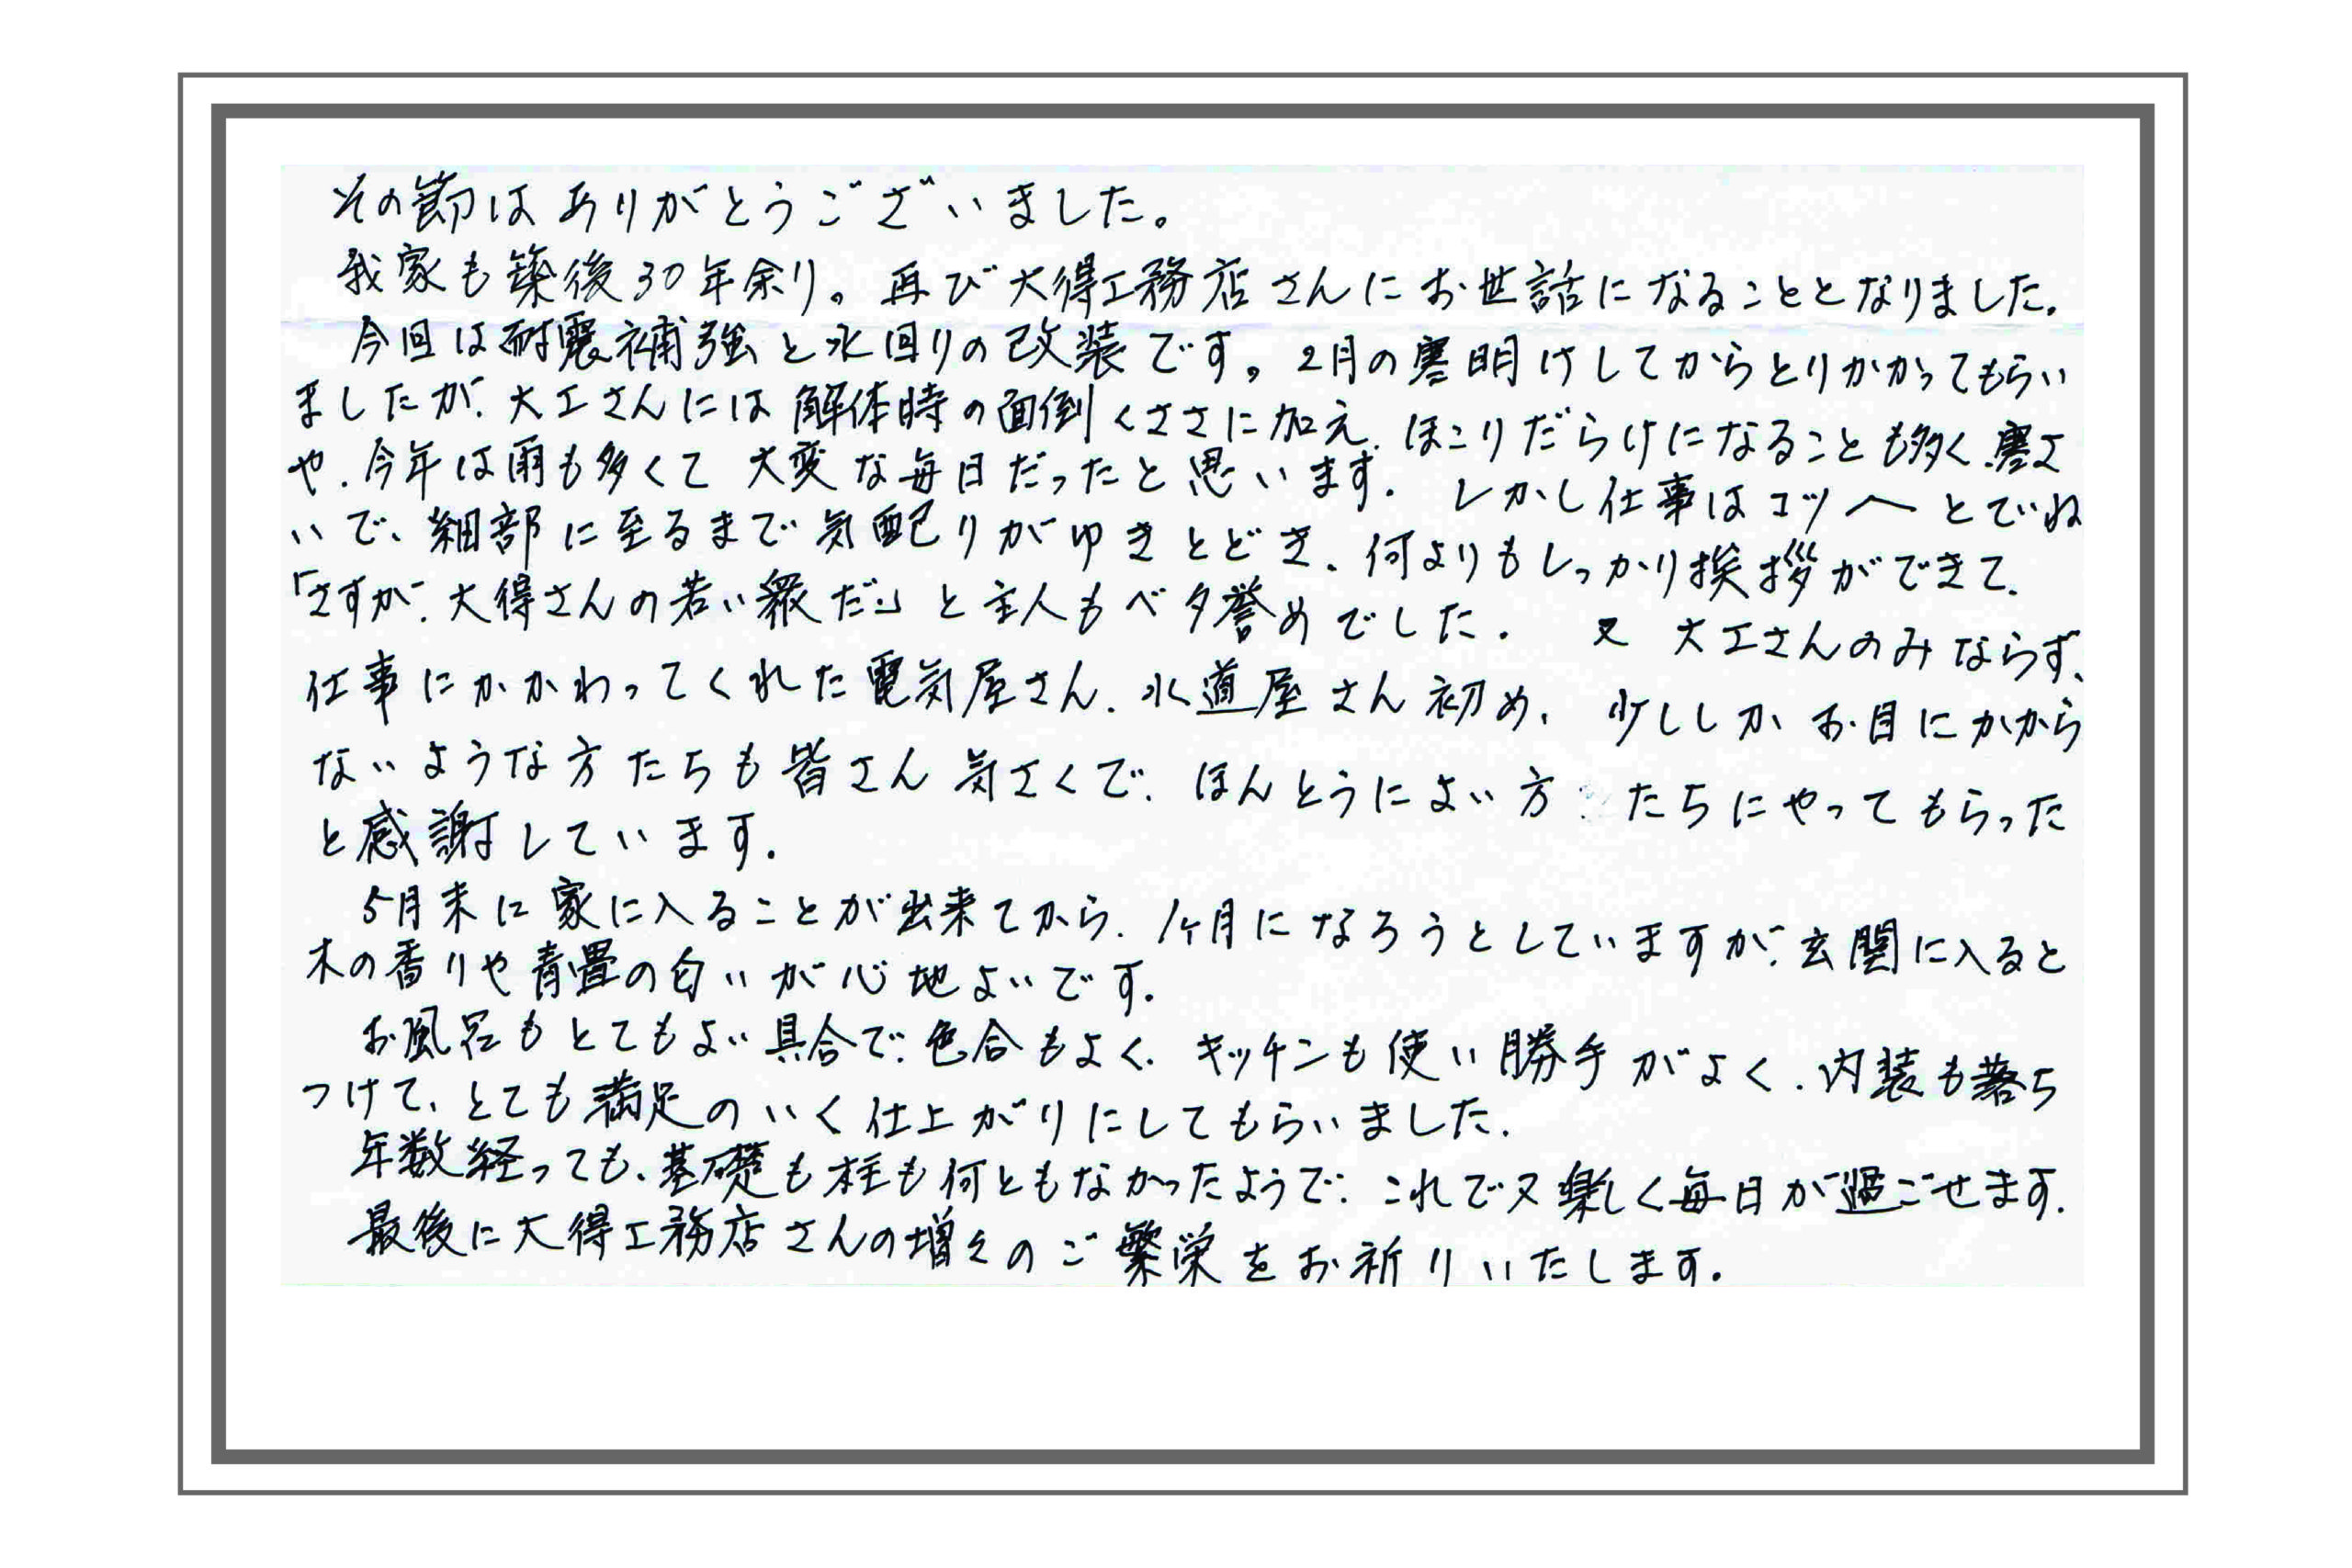 その節はありがとうございました。
我家も築後30年余り。再び大得工務店さんにお世話になることとなりました。
今回は耐震補強と水回りの改装です。2月の寒明けしてからとりかかってもらい
ましたが、大工さんには解体時の面倒くささに加え、ほこりだらけになることも多く、寒さ
や、今年は雨も多くて大変な毎日だったと思います。しかし仕事はコツ〳〵とでいね
いで、細部に至るまで気配りがゆきとどき、何よりもしっかり挨拶ができて、
「さすが、大得さんの若い衆だ」と主人もベタ誉めでした。又 大工さんのみならず、
仕事にかかわってくれた電気屋さん、水道屋さん初め、少ししかお目にかから
ないような方たちも皆さん気さくで、ほんとうによい方たちにやってもらった
と感謝しています。
5月末に家に入ることが出来てから、1ヶ月になろうとしていますが、玄関に入ると
木の香りや青畳の匂いが心地よいです。
お風呂もとてもよい具合で、色合もよく、キッチンも使い勝手がよく、内装も落ち
つけて、とても満足のいく仕上がりにしてもらいました。
年数経っても、基礎も柱も何ともなかったようで、これで又楽しく毎日が過ごせます。
最後に大得工務店さんの増々のご繁栄をお祈りいたします。